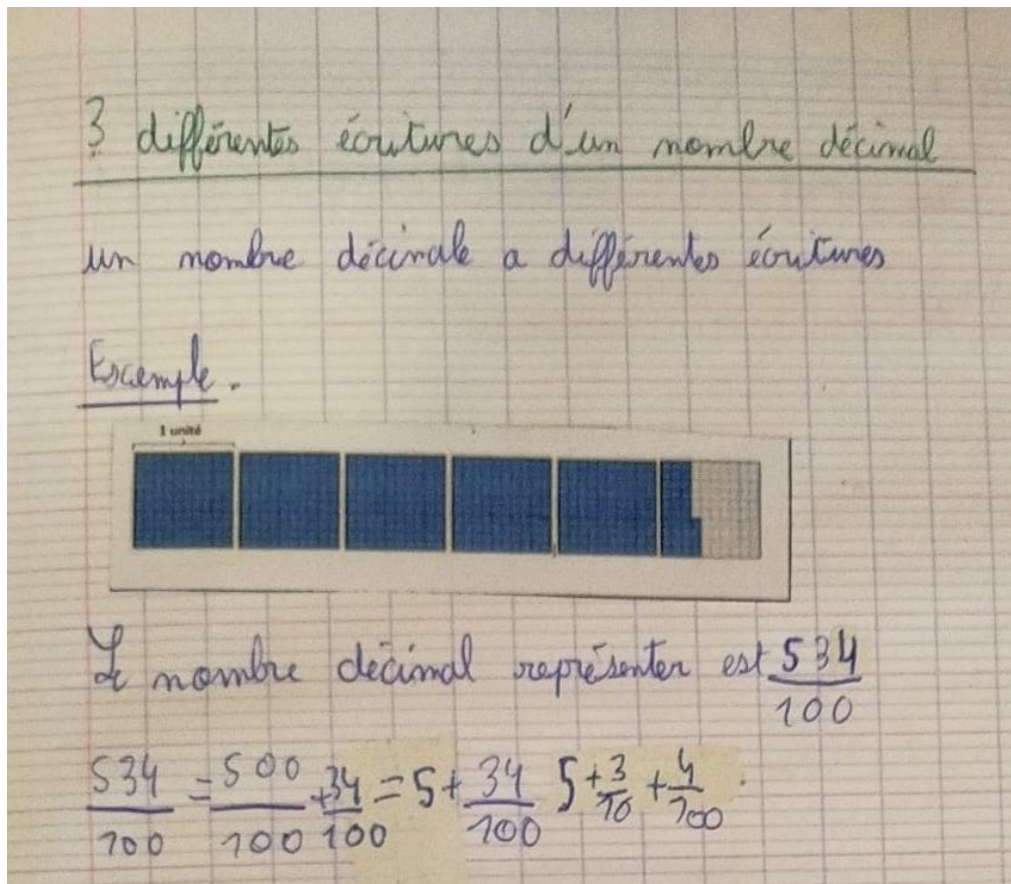 3 différentes écritures d'un nombre décimal
un nombre décimale a différentes écritures
Exemple.
1 unité
Le nombre décimal représenter est 534/100
534/100 = 500/100 + 34/100 = 5 + 34/100 5 + 3/10 + 4/100.